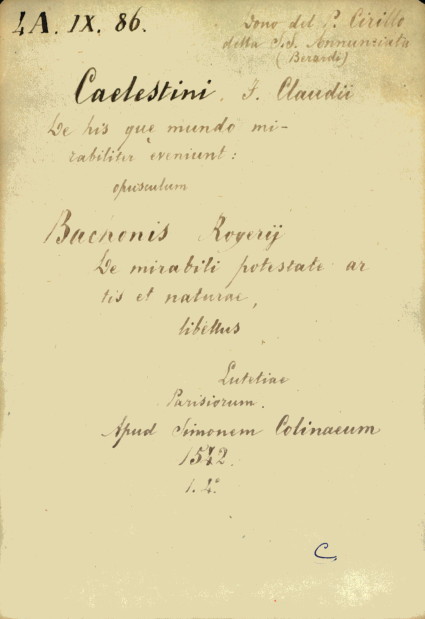 4A. IX. 86.
Dono del P. Cirillo
della S.S. Annunciata
(Berardi)
Caelestini. F. Claudii
De his que mundo mi-
rabiliter eveniunt:
opusculum
Bachonis Rogerij
De mirabili potestate ar
tis et naturae,
libellus
Lutetiae
Parisiorum.
Apud Simonem Colinaeum
1542.
1. 4°
C